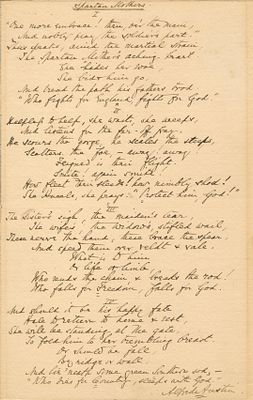 Spartan Mothers
I
"One more embrace! Then, o'er the main,
And nobly play the soldier's part!"
Thus speaks, amid the martial strain,
The Spartan Mother's aching heart.
She hides her woe,
She bids him go,
And tread the path his fathers trod.
"Who fights for England, fights for God."
II
Helpless to help, she waits, she weeps,
And listens for the far-off fray.
He scours the gorge, he scales the steeps,
Scatters the foe, - away, away!
Feigned is their flight!
Smite! again smite!
How fleet their steeds! how nimbly shod!
She kneels, she prays: "Protect him, God!"
III
The Sister's sigh, the maiden's tear,
The wife's, the widow's, stifled wail,
These nerve the hand, these brace the spear,
And speed them over veldt & vale.
What is to him
Or life or limb,
Who rends the chain & breaks the rod!
Who falls for Freedom, falls for God.
IV
And should it be his happy fate
Hale to return to home & rest,
She will be standing at the gate,
To fold him to her trembling breast.
Or should he fall
By ridge or wall,
And lie 'neath some green Southern sod, -
"Who dies for Country, sleeps with God."
Alfred Austin